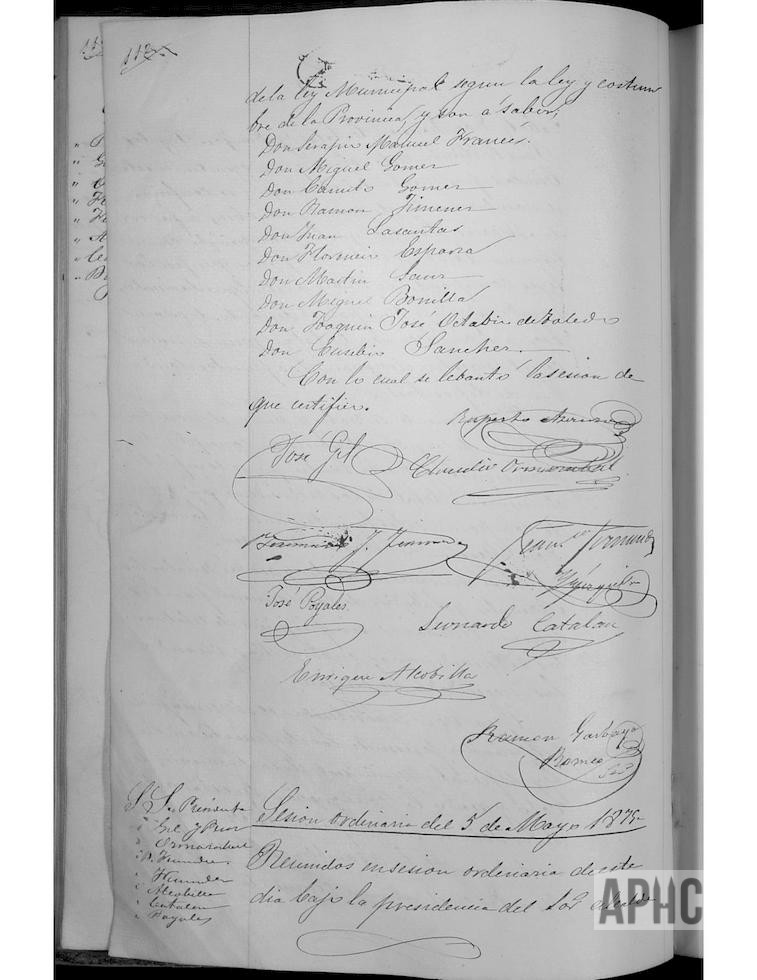 112
de la ley Municipal segun la ley y costum
bre de la Provincia, y son á saber,
Don Serapio Manuel Francés.
Don Miguel Gomez
Don Camilo Gomez
Don Ramon Jimenez
Don Juan Lasantas
Don Florencio Esparza
Don Martin Sanz
Don Miguel Bonilla
Don Joaquin José Octabio de Toledo
Don Eusebio Sanchez.
Con lo cual se lebantó la sesion de
que certifico.
Ruperto
José Gil
Claudio
J.
José Poyales
Leonardo Catalan
Enrique Alcobilla
Ramon Garbayo
Romeo
S. S. Presidente
Gil y Pozo
Alcobilla
Catalan
Poyales
Sesion ordinaria del 5 de Mayo 1875
Reunidos en sesion ordinaria de este
dia bajo la presidencia del Sor Alcalde
APHC